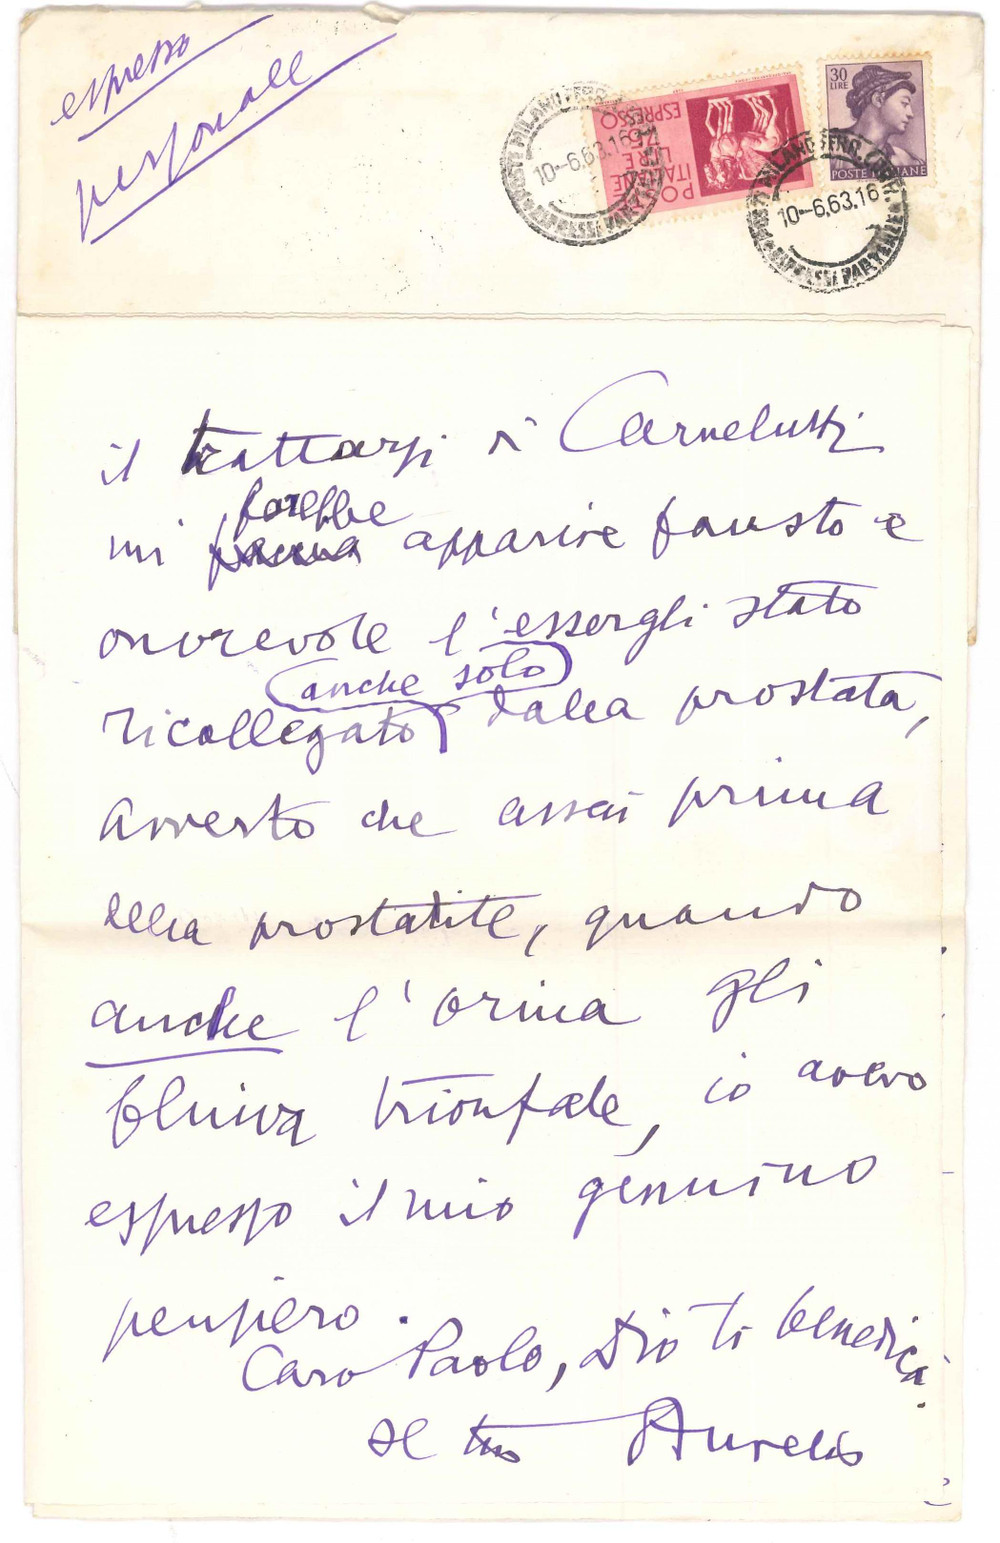 espresso
personale
POSTE ITALIANE
LIRE 75
ESPRESSO
30
LIRE
POSTE ITALIANE
10-6.63.16
10-6.63.16
il trattarsi di Carnelutti
farebbe
mi apparire fausto e
onorevole l'essergli stato
anche solo
ricollegato dalla prostata,
avverto che assai prima
della prostatite, quando
anche l'orina gli
fluiva trionfale, io avevo
espresso il mio genuino
pensiero.
Caro Paolo, Dio ti benedica.
il tuo Aurelio